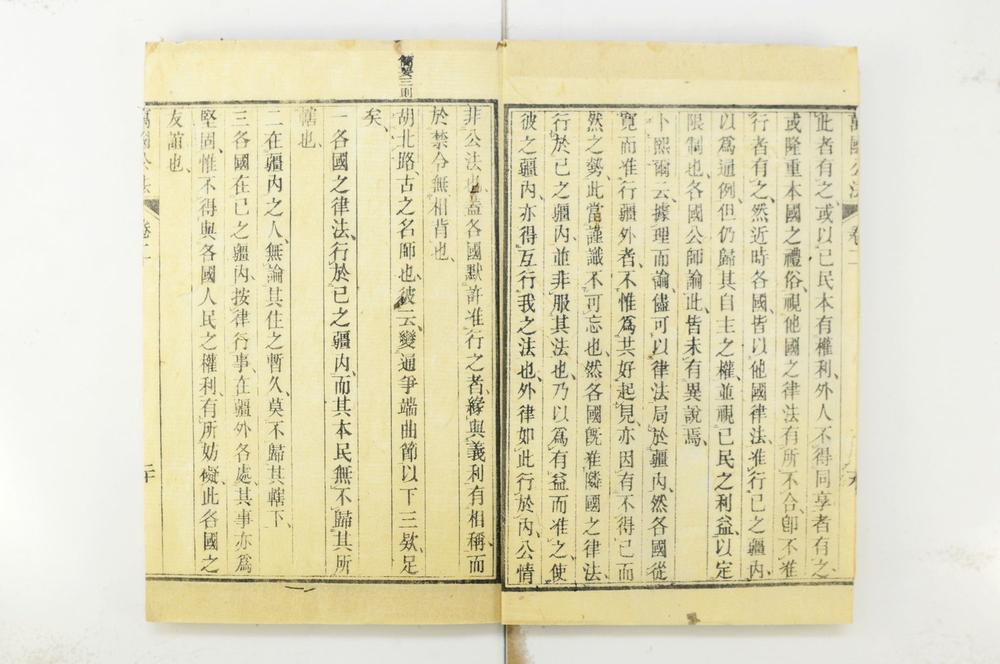 萬國公法 卷二
此者有之、或以己民本有權利、外人不得同享者有之、
或隆重本國之禮俗、視他國之律法有所不合、卽不准
行者有之、然近時各國、皆以他國律法、准行己之疆內、
以爲通例、但仍歸其自主之權、並視己民之利益、以定
限制也、各國公師論此、皆未有異說焉、
卜熙爾云、據理而論、儘可以律法局於疆內、然各國從
寬而准行疆外者、不惟爲其好起見、亦因有不得已而
然之勢、此當謹識不可忘也、然各國旣准隣國之律法、
行於己之疆內、並非服其法也、乃以爲有益而准之、使
彼之疆內、亦得互行我之法也、外律如此行於內、公情
非公法也、蓋各國默許准行之者、緣與義利有相稱、而
於禁令無相背也、
簡要三則
胡北路古之名師也、彼云、變通爭端曲節以下三欵足
矣、
一各國之律法、行於己之疆內、而其本民無不歸其所
轄也、
二在疆內之人、無論其住之暫久、莫不歸其轄下、
三各國在己之疆內、按律行事、在疆外各處、其事亦爲
堅固、惟不得與各國人民之權利、有所妨礙、此各國之
友誼也、
萬國公法 卷二 二十